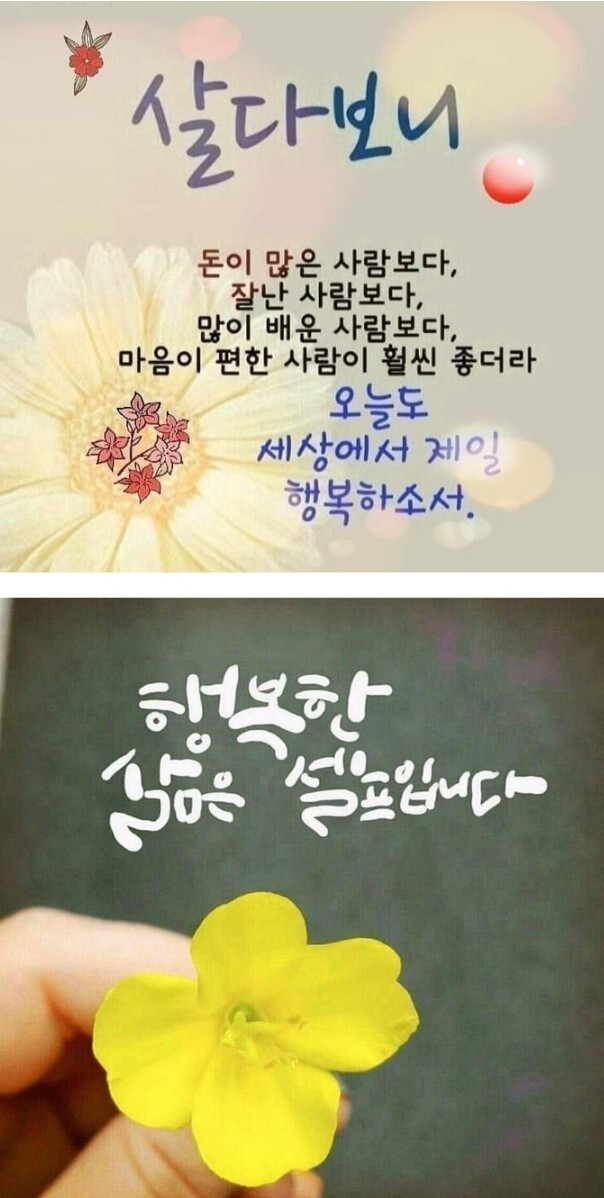 살다보니
돈이 많은 사람보다,
잘난 사람보다,
많이 배운 사람보다,
마음이 편한 사람이 훨씬 좋더라
오늘도
세상에서 제일
행복하소서.
행복한
삶은 셀프입니다